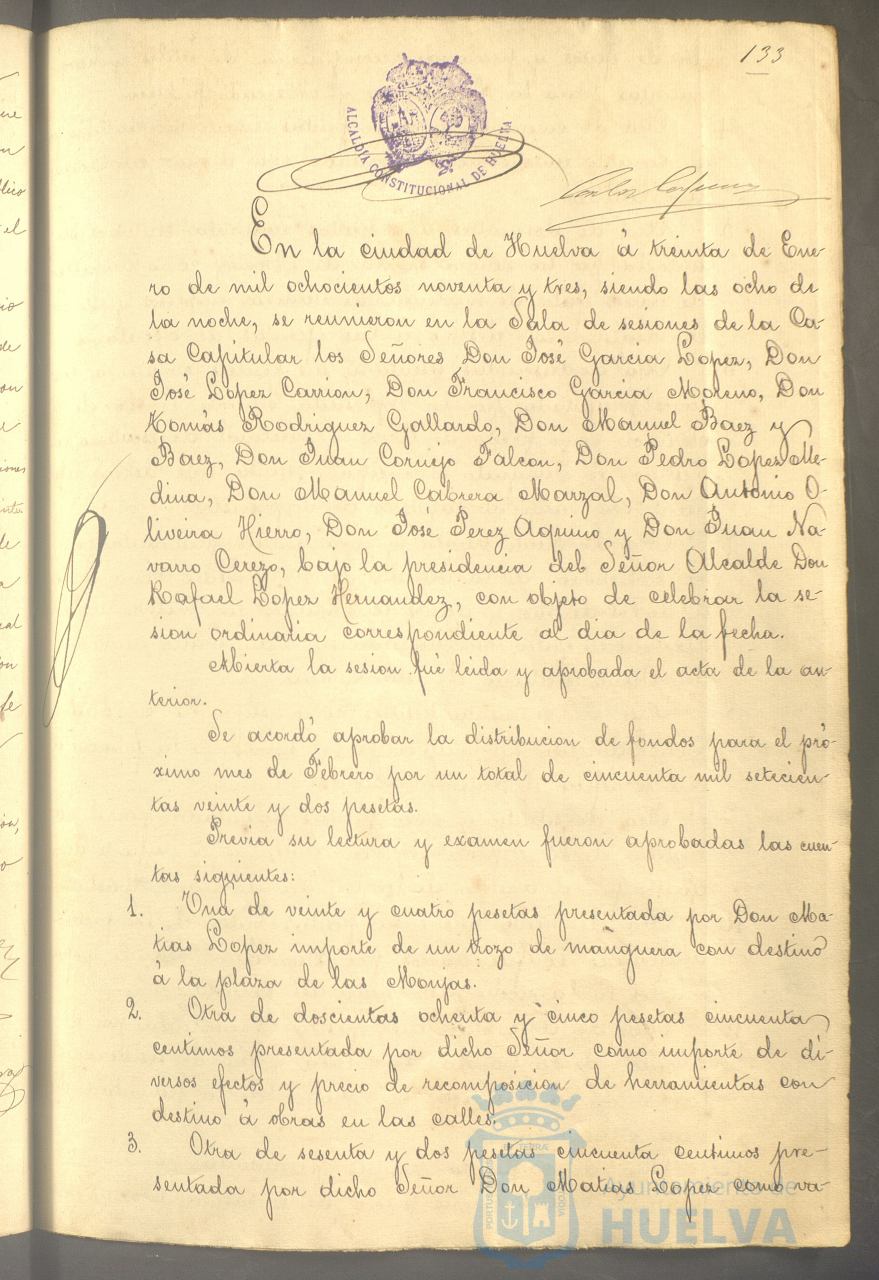 133
ALCALDÍA CONSTITUCIONAL DE HUELVA
Carlos
En la ciudad de Huelva á treinta de Ene-
ro de mil ochocientos noventa y tres, siendo las ocho de
la noche, se reunieron en la Sala de sesiones de la Ca-
sa Capitular los Señores Don José Garcia Lopez, Don
José Lopez Carrion, Don Francisco Garcia Moreno, Don
Tomás Rodriguez Gallardo, Don Manuel Baez y
Baez, Don Juan Cornejo Falcon, Don Pedro Lopez Me-
dina, Don Manuel Cabrera Marzal, Don Antonio O-
liveira Hierro, Don José Perez Aquino y Don Juan Na-
varro Cerezo, bajo la presidencia del Señor Alcalde Don
Rafael Lopez Hernandez, con objeto de celebrar la se-
sion ordinaria correspondiente al dia de la fecha.
Abierta la sesion fué leida y aprobada el acta de la an-
terior.
Se acordó aprobar la distribucion de fondos para el pró-
ximo mes de Febrero por un total de cincuenta mil setecien-
tas veinte y dos pesetas.
Previa su lectura y examen fueron aprobadas las cuen-
tas siguientes:
1. Una de veinte y cuatro pesetas presentada por Don Ma-
tias Lopez importe de un trozo de manguera con destino
á la plaza de las Monjas.
2. Otra de doscientas ochenta y cinco pesetas cincuenta
centimos presentada por dicho Señor como importe de di-
versos efectos y precio de recomposicion de herramientas con
destino á obras en las calles.
3. Otra de sesenta y dos pesetas cincuenta centimos pre-
sentada por dicho Señor Don Matias Lopez como va-
Ayuntamiento de
HUELVA